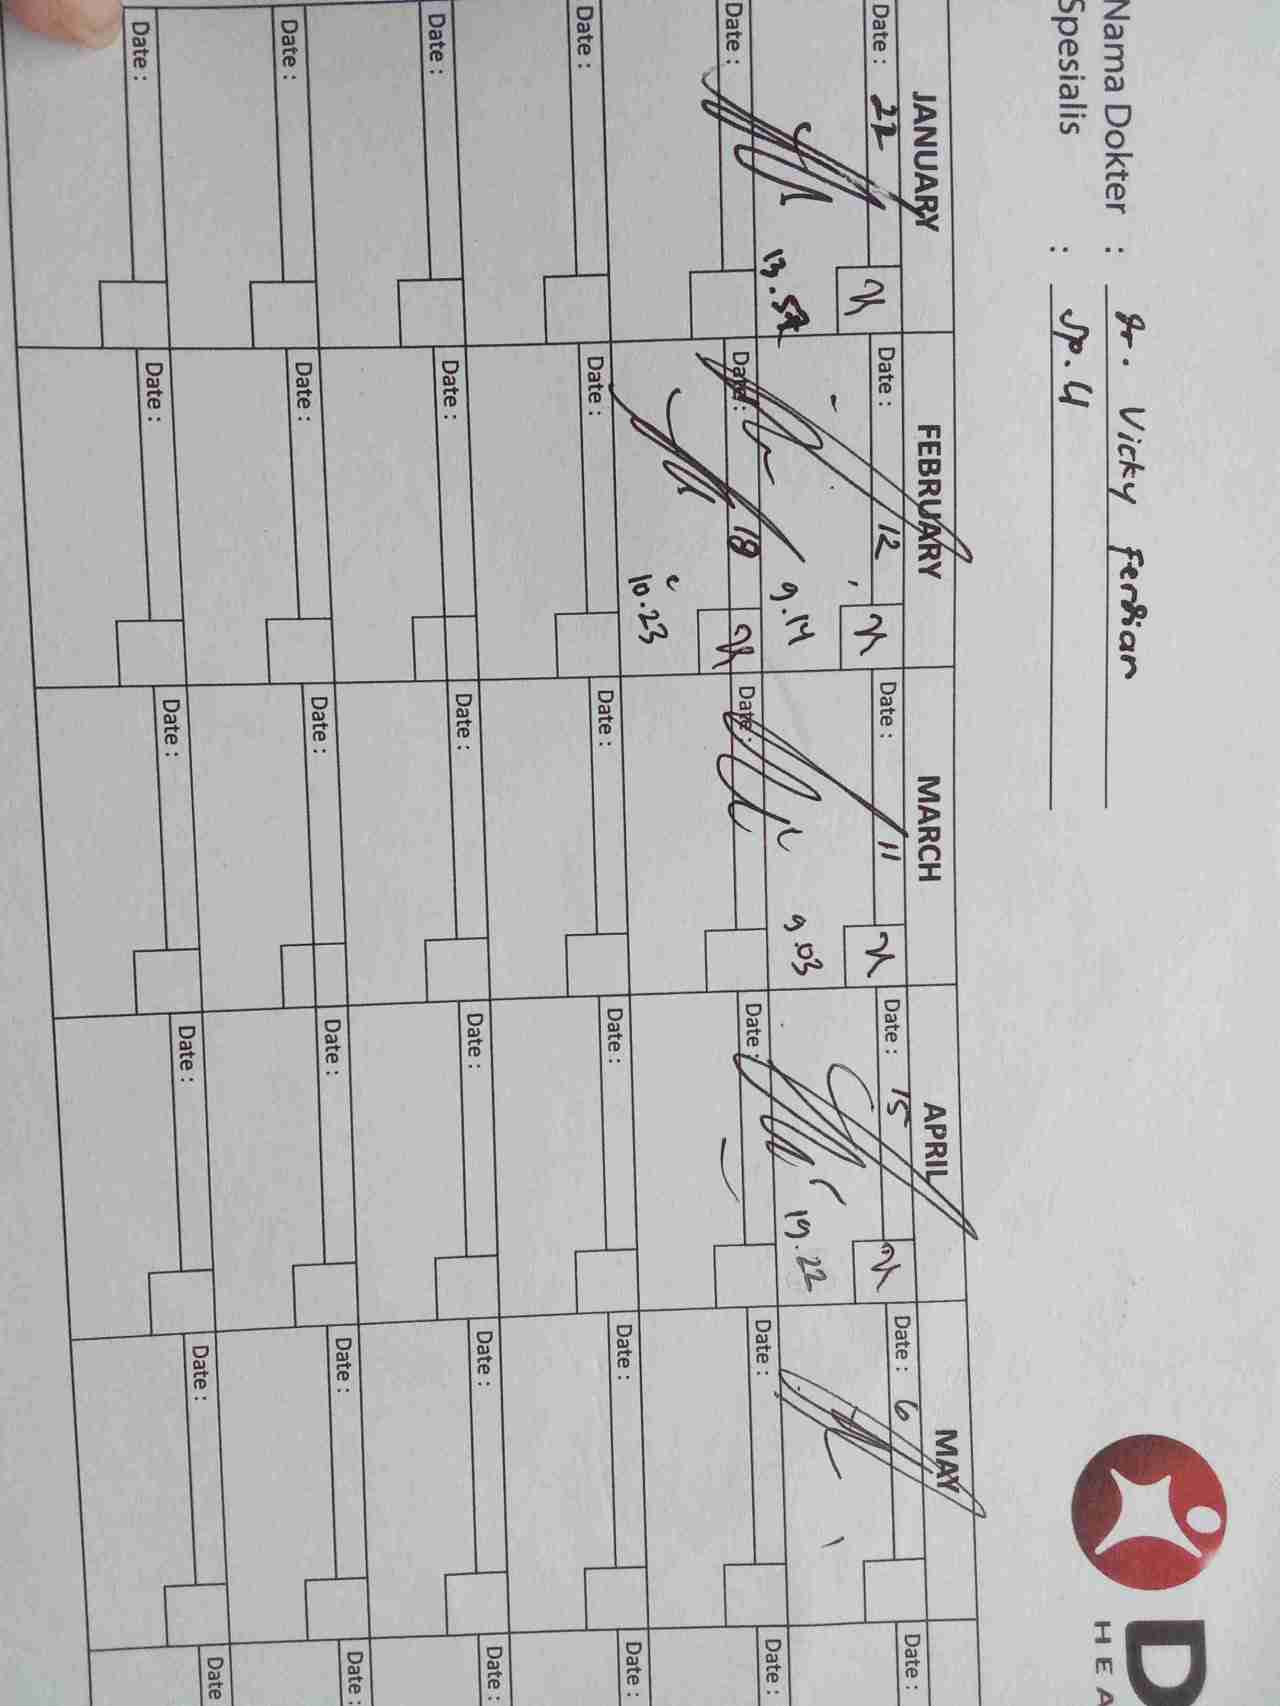 Nama Dokter : dr. Vicky Ferdian
Spesialis : Sp.U
D
HEA
JANUARY FEBRUARY MARCH APRIL MAY
Date : 22 Date : 12 Date : 11 Date : 15 Date : 6 Date :
9.14 9.03 19.22
Date : Date : 18 Date : Date : Date : Date :
10.23
Date : Date : Date : Date : Date : Date :
Date : Date : Date : Date : Date : Date :
Date : Date : Date : Date : Date : Date :
Date : Date : Date : Date : Date : Date